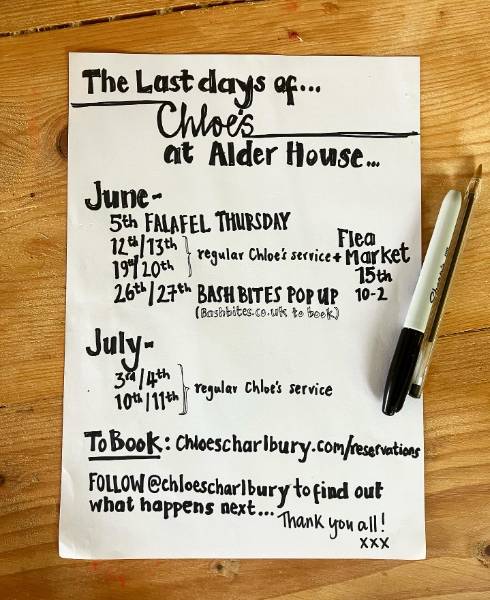 The Last days of...
Chloe's
at Alder House...
June-
5th FALAFEL THURSDAY
12th/13th
19th/20th
regular Chloe's service +
Flea
Market
15th
10-2
26th/27th BASH BITES POP UP
(Bashbites.co.uk to book)
July-
3rd/4th
10th/11th
regular Chloe's service
To Book: Chloescharlbury.com/reservations
FOLLOW @chloescharlbury to find out
what happens next...
Thank you all!
xxx
Sharpie